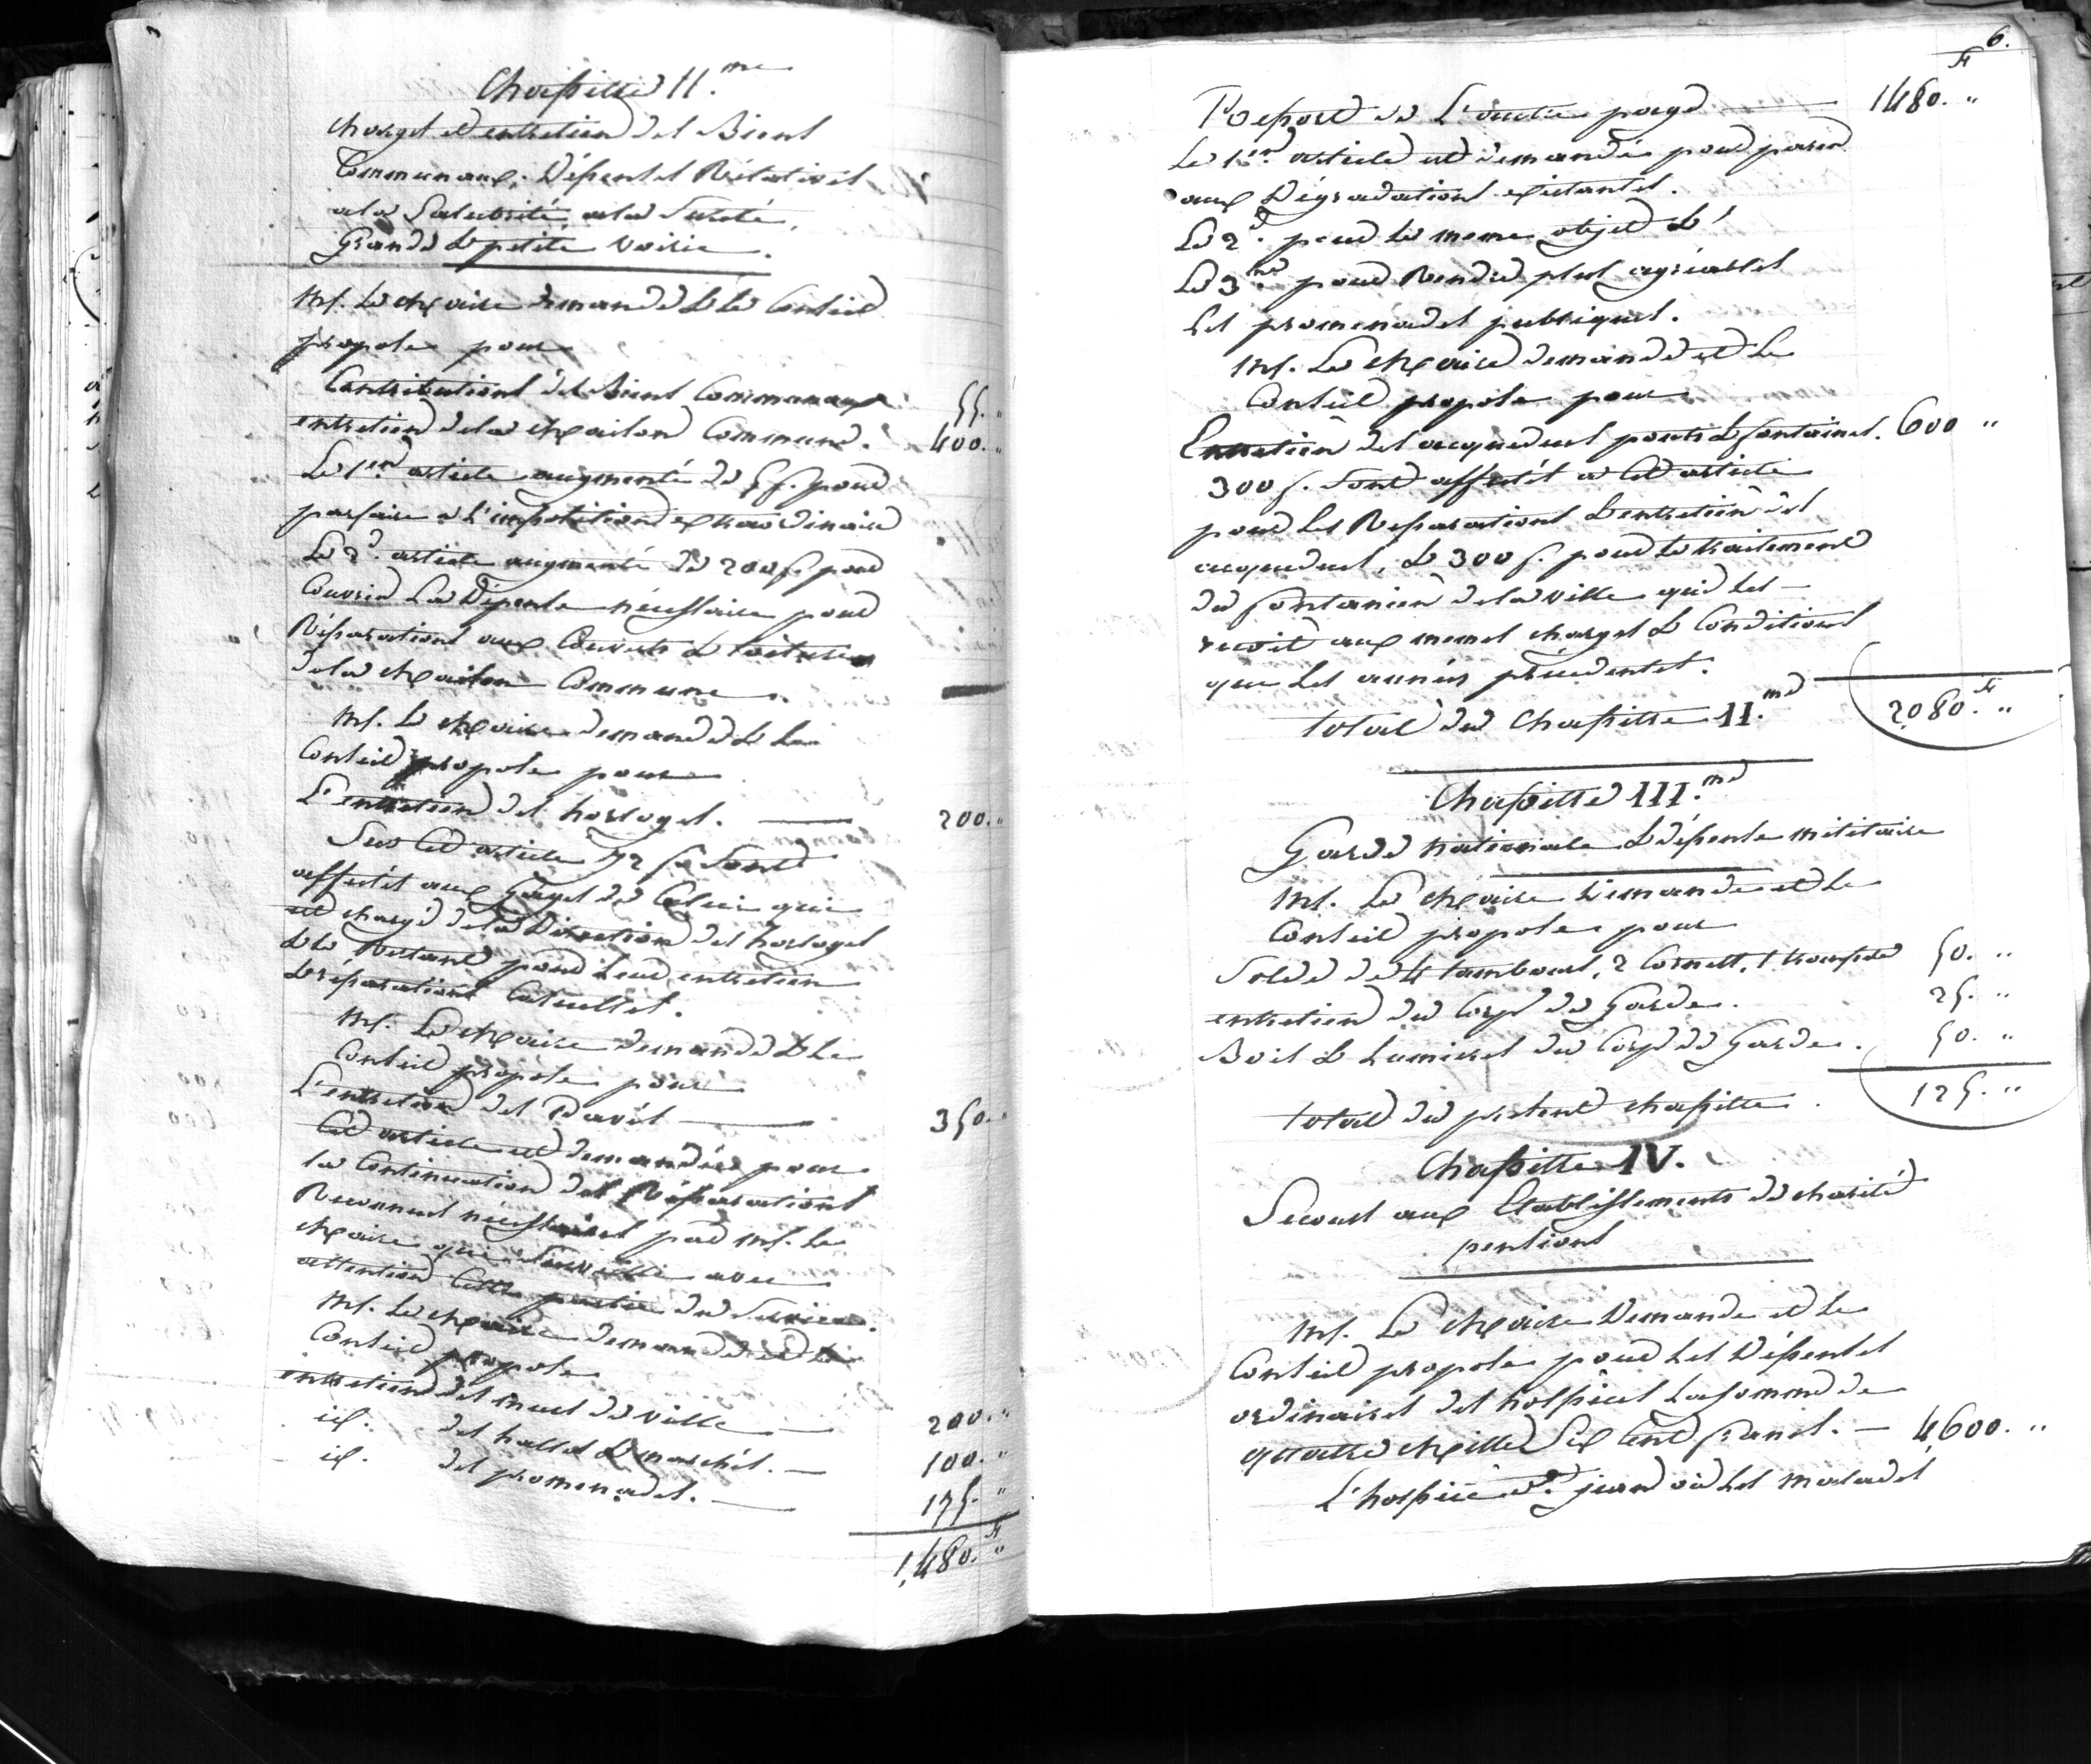 Chapitre II.me
Charges et entretien des Biens
Communaux; Dépenses Rélatives
a la Salubrité, a la Sureté,
Grande & petite voirie.
Mr. Le Maire demande & le Conseil
propose pour
Contributions des Biens Communaux 55. "
entretien de la Maison Commune. 400. "
Le 1er article augmenté de 5 f. pour
parfaire a l'imposition extraordinaire
Le 2d. article augmenté de 200 f. pour
Couvrir La Dépense nécessaire pour
Réparations aux Couverts & toitures
de la Maison Commune.
Mr. Le Maire demande & Le
Conseil propose pour
L'entretien des horloges. 200. "
Sur Cet article 72 f. Sont
affectés aux Gages de Celui qui
est chargé de la Direction des horloges
& le Restant pour Leur entretien
& réparations Casuelles.
Mr. Le Maire demande & Le
Conseil propose pour
L'entretien des Pavés 350. "
Cet article est demandé pour
la Continuation des Réparations
Reconnues nécessaires par Mr. Le
Maire qui Surveille avec
attention Cette partie du Service.
Mr. Le Maire demande et le
Conseil propose
entretien des murs de ville 200. "
id. des halles & marchés. 100. "
id. des promenades. 175. "
1,480. f "
6.
Report de L'autre page 1480. f "
Le 1er article est demandé pour parer
aux Dégradations existantes.
Le 2d. pour le meme objet &
Le 3me pour Rendre plus agréables
Les promenades publiques.
Mr. Le Maire demande et Le
Conseil propose pour
Entretien des acqueducs ponts & fontaines. 600 "
300 f. Sont affectés a Cet article
pour Les Reparations & entretien des
acqueducs, & 300 f. pour le traitement
du fontanier de la ville qui Les
recoit aux memes charges & Conditions
que Les années précédentes.
total du Chapitre II.me 2,080. f "
Chapitre III.me
Garde nationale & dépense militaire
Mr. Le Maire Demande et Le
Conseil propose pour
Solde de 4 tambours, 2 Cornets, 1 trompette 50. "
entretien du Corps de Garde. 25. "
Bois & Lumieres du Corps de Garde. 50. "
total du présent chapitre. 125. "
Chapitre IV.
Secours aux Etablissements de charité
pensions
Mr. Le Maire Demande et Le
Conseil propose pour Les Dépenses
ordinaires des hospices La somme de
quatre Mille Six Cent francs. 4,600. "
L'hospice St. jean où Les malades